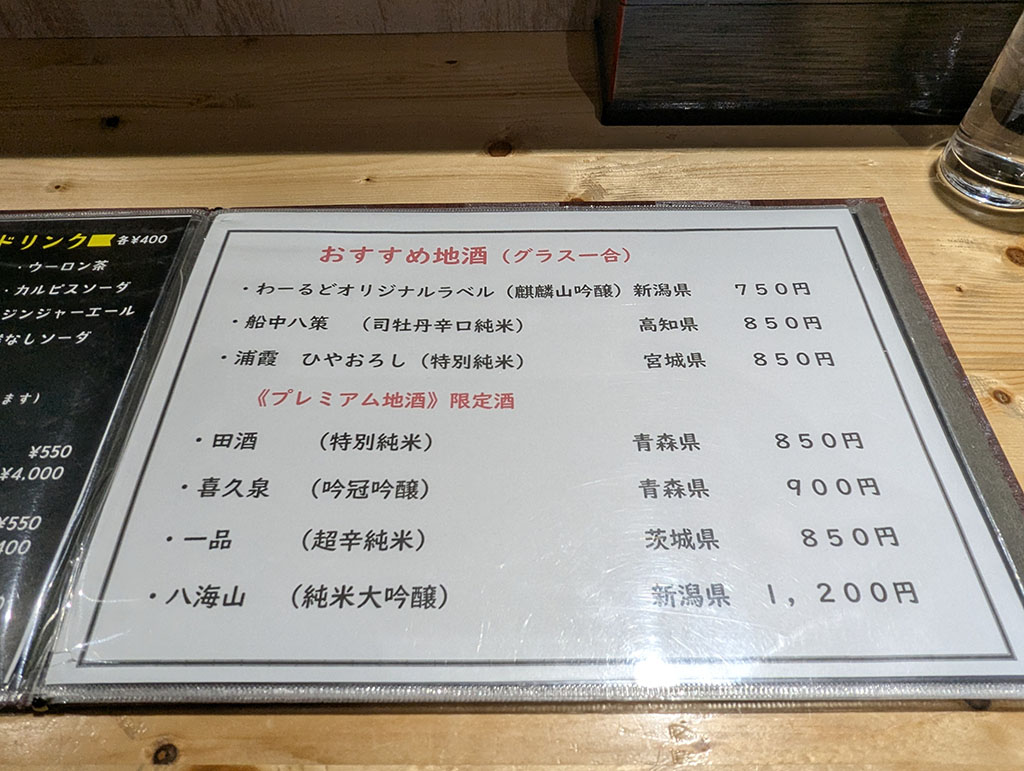 ドリンク 各¥400
・ウーロン茶
・カルピスソーダ
ジンジャーエール
なしソーダ
ます)
¥550
¥4,000
¥550
400
おすすめ地酒（グラス一合）
・わーるどオリジナルラベル（麒麟山吟醸）新潟県 ７５０円
・船中八策 （司牡丹辛口純米） 高知県 ８５０円
・浦霞 ひやおろし（特別純米） 宮城県 ８５０円
《プレミアム地酒》限定酒
・田酒 （特別純米） 青森県 ８５０円
・喜久泉 （吟冠吟醸） 青森県 ９００円
・一品 （超辛純米） 茨城県 ８５０円
・八海山 （純米大吟醸） 新潟県 １，２００円